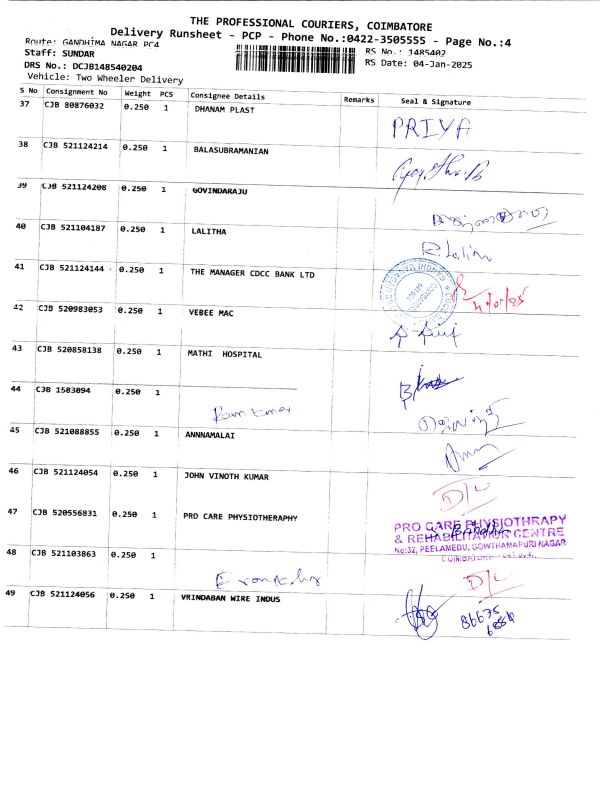 THE PROFESSIONAL COURIERS, COIMBATORE
Delivery Runsheet - PCP - Phone No.:0422-3505555 - Page No.:4
Route: GANDHIMA NAGAR PC4
RS No.: 1485402
Staff: SUNDAR
RS Date: 04-Jan-2025
DRS No.: DCJB148540204
Vehicle: Two Wheeler Delivery
S No Consignment No Weight PCS Consignee Details Remarks Seal & Signature
37 CJB 80876032 0.250 1 DHANAM PLAST PRIYA
38 CJB 521124214 0.250 1 BALASUBRAMANIAN
39 CJB 521124208 0.250 1 GOVINDARAJU
40 CJB 521104187 0.250 1 LALITHA R. Lalitha
41 CJB 521124144 0.250 1 THE MANAGER CDCC BANK LTD
42 CJB 520983053 0.250 1 VEBEE MAC
43 CJB 520858138 0.250 1 MATHI HOSPITAL
44 CJB 1583894 0.250 1
45 CJB 521088855 0.250 1 ANNNAMALAI
46 CJB 521124054 0.250 1 JOHN VINOTH KUMAR D/L
47 CJB 520556831 0.250 1 PRO CARE PHYSIOTHERAPHY
PRO CARE PHYSIOTHRAPY
& REHABILITAVIOR CENTRE
No:32, PEELAMEDU, GOWTHAMAPURI NAGAR
48 CJB 521103863 0.250 1 D/L
49 CJB 521124056 0.250 1 VRINDABAN WIRE INDUS